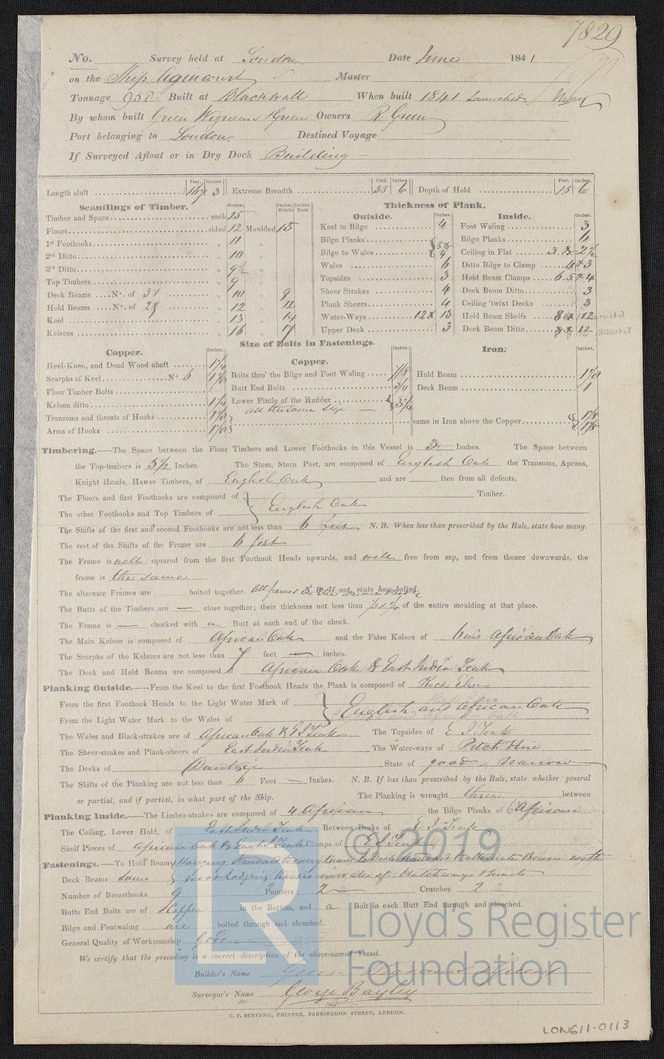 7829
No. Survey held at London Date June 1841
on the Ship Agincourt Master
Tonnage 958 Built at Blackwall When built 1841 Launched
By whom built Green Wigrams & Green Owners R. Green
Port belonging to London Destined Voyage
If Surveyed Afloat or in Dry Dock Building
Feet. Inches. Feet. Inches. Feet. Inches.
Length aloft 167 3 Extreme Breadth 35 6 Depth of Hold 15 6
Scantlings of Timber. Thickness of Plank.
Outside. Inside.
Timber and Space each 15 Keel to Bilge 4 Foot Waling 3
Floors sided 12 Moulded 15 Bilge Planks Bilge Planks 6
1st Foothooks 11 Bilge to Wales 4 Ceiling in Flat
2nd Ditto 10 Wales 6 Ditto Bilge to Clamp 4 & 3
3rd Ditto 9½ Topsides 3 Hold Beam Clamps
Top Timbers 9 Sheer Strakes 4 Deck Beam Ditto 3
Deck Beams No. of 31 10 9 Plank Sheers 4 Ceiling 'twixt Decks 3
Hold Beams No. of 29 12 12 Water-Ways 12 x 13 Hold Beam Shelfs 8 x 12
Keel 13 14 Upper Deck 3 Deck Beam Ditto
Kelsons 16
Size of Bolts in Fastenings.
Copper. Copper. Iron.
Heel-Knee, and Dead Wood abaft 1¼ Bolts thro' the Bilge and Foot Waling 1⅛ Hold Beam
Scarphs of Keel No. 6 1⅛ Butt End Bolts ¾ Deck Beam 1
Floor Timber Bolts Lower Pintle of the Rudder 3¼
Kelson ditto 1¼
Transoms and throats of Hooks 1⅛ same in Iron above the Copper 1⅛
Arms of Hooks 1⅛
Timbering.—The Space between the Floor Timbers and Lower Foothooks in this Vessel is 3 Inches. The Space between
the Top-timbers is 5½ Inches. The Stem, Stern Post, are composed of English Oak the Transoms, Aprons,
Knight Heads, Hawse Timbers, of English Oak and are free from all defects.
The Floors and first Foothooks are composed of Timber.
English Oak
The other Foothooks and Top Timbers of
The Shifts of the first and second Foothooks are not less than 6 feet N. B. When less than prescribed by the Rule, state how many.
The rest of the Shifts of the Frame are 6 feet
The Frame is well squared from the first Foothook Heads upwards, and well free from sap, and from thence downwards, the
frame is the same
The alternate Frames are bolted together. All frames
The Butts of the Timbers are — close together; their thickness not less than of the entire moulding at that place.
The Frame is — chocked with a Butt at each end of the chock.
The Main Kelson is composed of African Oak and the False Kelson of African Oak
The Scarphs of the Kelsons are not less than 7 feet — inches.
The Deck and Hold Beams are composed of African Oak & East India Teak
Planking Outside.—From the Keel to the first Foothook Heads the Plank is composed of Rock Elm
From the first Foothook Heads to the Light Water Mark of
English and African Oak
From the Light Water Mark to the Wales of
The Wales and Black-strakes are of African Oak & E I Teak The Topsides of E I Teak
The Sheer-strakes and Plank-sheers of East India Teak The Water-ways of Pitch Pine
The Decks of Dantzic State of good Narrow
The Shifts of the Planking are not less than 6 Feet — Inches. N. B. If less than prescribed by the Rule, state whether general
or partial, and if partial, in what part of the Ship. The Planking is wrought three between
Planking Inside.—The Limber-strakes are composed of 4 African the Bilge Planks of African
The Ceiling, Lower Hold, of East India Teak Between Decks of E I Teak
Shelf Pieces of African Oak & East I Teak Clamps of E I Teak
Fastenings.—To Hold Beams Hanging Standards to every Beam
Deck Beams same Lodging knees Hatchways
Number of Breasthooks 9 Pointers 2 Crutches 2
Butts End Bolts are of Copper in the Bottom, and a Bolt in each Butt End through and clenched.
Bilge and Footwaling are bolted through and clenched.
General Quality of Workmanship Good
We certify that the preceding is a correct description of the above-named Vessel.
Builder's Name
Surveyor's Name George Bayley
C. F. SEYFANG, PRINTER, FARRINGDON STREET, LONDON.
LON611-0113
© 2019
Lloyd's Register
Foundation